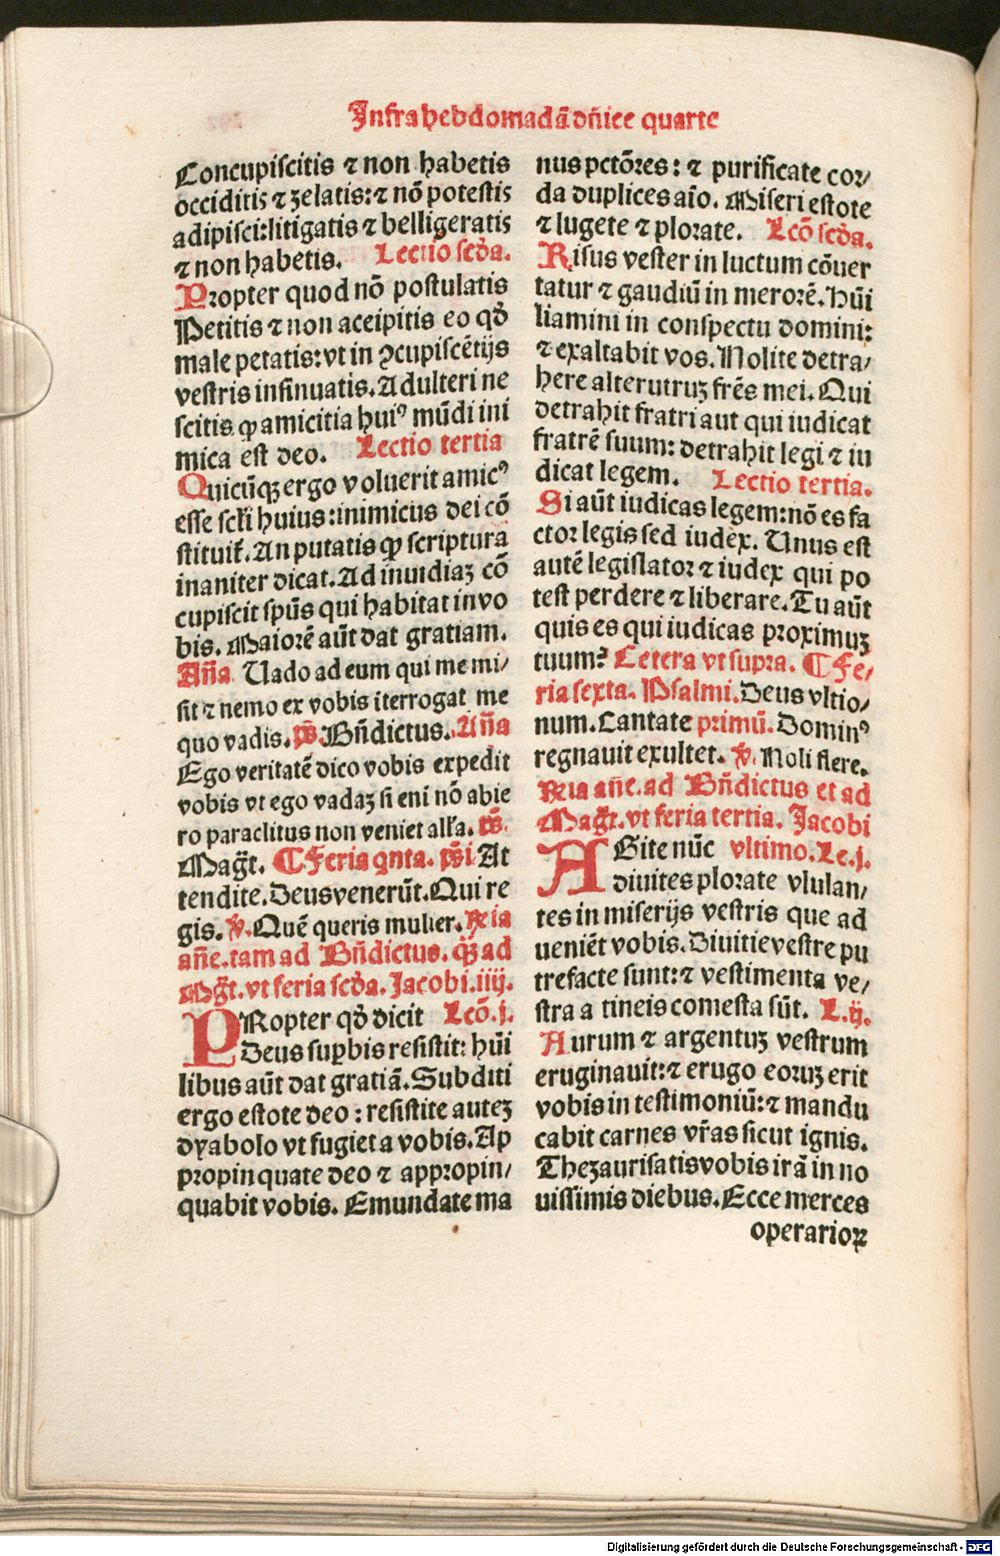 Infra hebdomadā dn̄ice quarte
Concupiscitis ⁊ non habetis
occiditis ⁊ zelatis: ⁊ nō potestis
adipisci: litigatis ⁊ belligeratis
⁊ non habetis. Lectio scd̓a.
Propter quod nō postulatis
Petitis ⁊ non accipitis eo qd̓
male petatis: vt in ꝯcupiscētijs
vestris insinuatis. Adulteri ne
scitis ꝙ amicitia huiꝰ mūdi ini
mica est deo. Lectio tertia
Quicūqꝫ ergo voluerit amicꝰ
esse scl̓i huius: inimicus dei cō
stituit᷑. An putatis ꝙ scriptura
inaniter dicat. Ad inuidiaꝫ cō
cupiscit spūs qui habitat in vo
bis. Maiorē aūt dat gratiam.
Añа Vado ad eum qui me mi⸗
sit ⁊ nemo ex vobis iterrogat me
quo vadis. p̄s. Bn̄dictus. Aña
Ego veritatē dico vobis expedit
vobis vt ego vadaꝫ si eni nō abie
ro paraclitus non veniet all'a. p̄s.
Mag̃t. ¶ Feria qnta. p̄si At
tendite. Deus venerūt. Qui re
gis. ℣. Quē queris mulier. ℟ia
añe. tam ad Bn̄dictus. qꝫ̄ ad
Mg̃t. vt feria scd̓a. Jacobi. iiij.
PRopter qd̓ dicit Lcō. j.
Deus supbis resistit: hūi
libus aūt dat gratiā. Subditi
ergo estote deo: resistite auteꝫ
dyabolo vt fugiet a vobis. Ap
propinquate deo ⁊ appropin⸗
quabit vobis. Emundate ma
nus pctōres: ⁊ purificate cor⸗
da duplices aīo. Miseri estote
⁊ lugete ⁊ plorate. Lcō scd̓a.
Risus vester in luctum cōuer
tatur ⁊ gaudiū in merorē. Hūi
liamini in conspectu domini:
⁊ exaltabit vos. Nolite detra⸗
here alterutruꝫ frēs mei. Qui
detrahit fratri aut qui iudicat
fratrē suum: detrahit legi ⁊ iu
dicat legem. Lectio tertia.
Si aūt iudicas legem: nō es fa
ctor legis sed iudex. Unus est
autē legislator ⁊ iudex qui po
test perdere ⁊ liberare. Tu aūt
quis es qui iudicas proximuꝫ
tuum? Cetera vt supra. ¶ Fe⸗
ria sexta. Psalmi. Deus vltio⸗
num. Cantate primū. Dominꝰ
regnauit exultet. ℣. Noli flere.
℟ia añe. ad Bn̄dictus et ad
Mag̃t. vt feria tertia. Jacobi
AGite nūc vltimo. Le. j.
diuites plorate vlulan⸗
tes in miserijs vestris que ad
ueniēt vobis. Diuitie vestre pu
trefacte sunt: ⁊ vestimenta ve⸗
stra a tineis comesta sūt. L. ij.
Aurum ⁊ argentuꝫ vestrum
eruginauit: ⁊ erugo eoruꝫ erit
vobis in testimoniū: ⁊ mandu
cabit carnes vr̄as sicut ignis.
Thezaurisatis vobis irā in no
uissimis diebus. Ecce merces
operarioꝝ
Digitalisierung gefördert durch die Deutsche Forschungsgemeinschaft - DFG